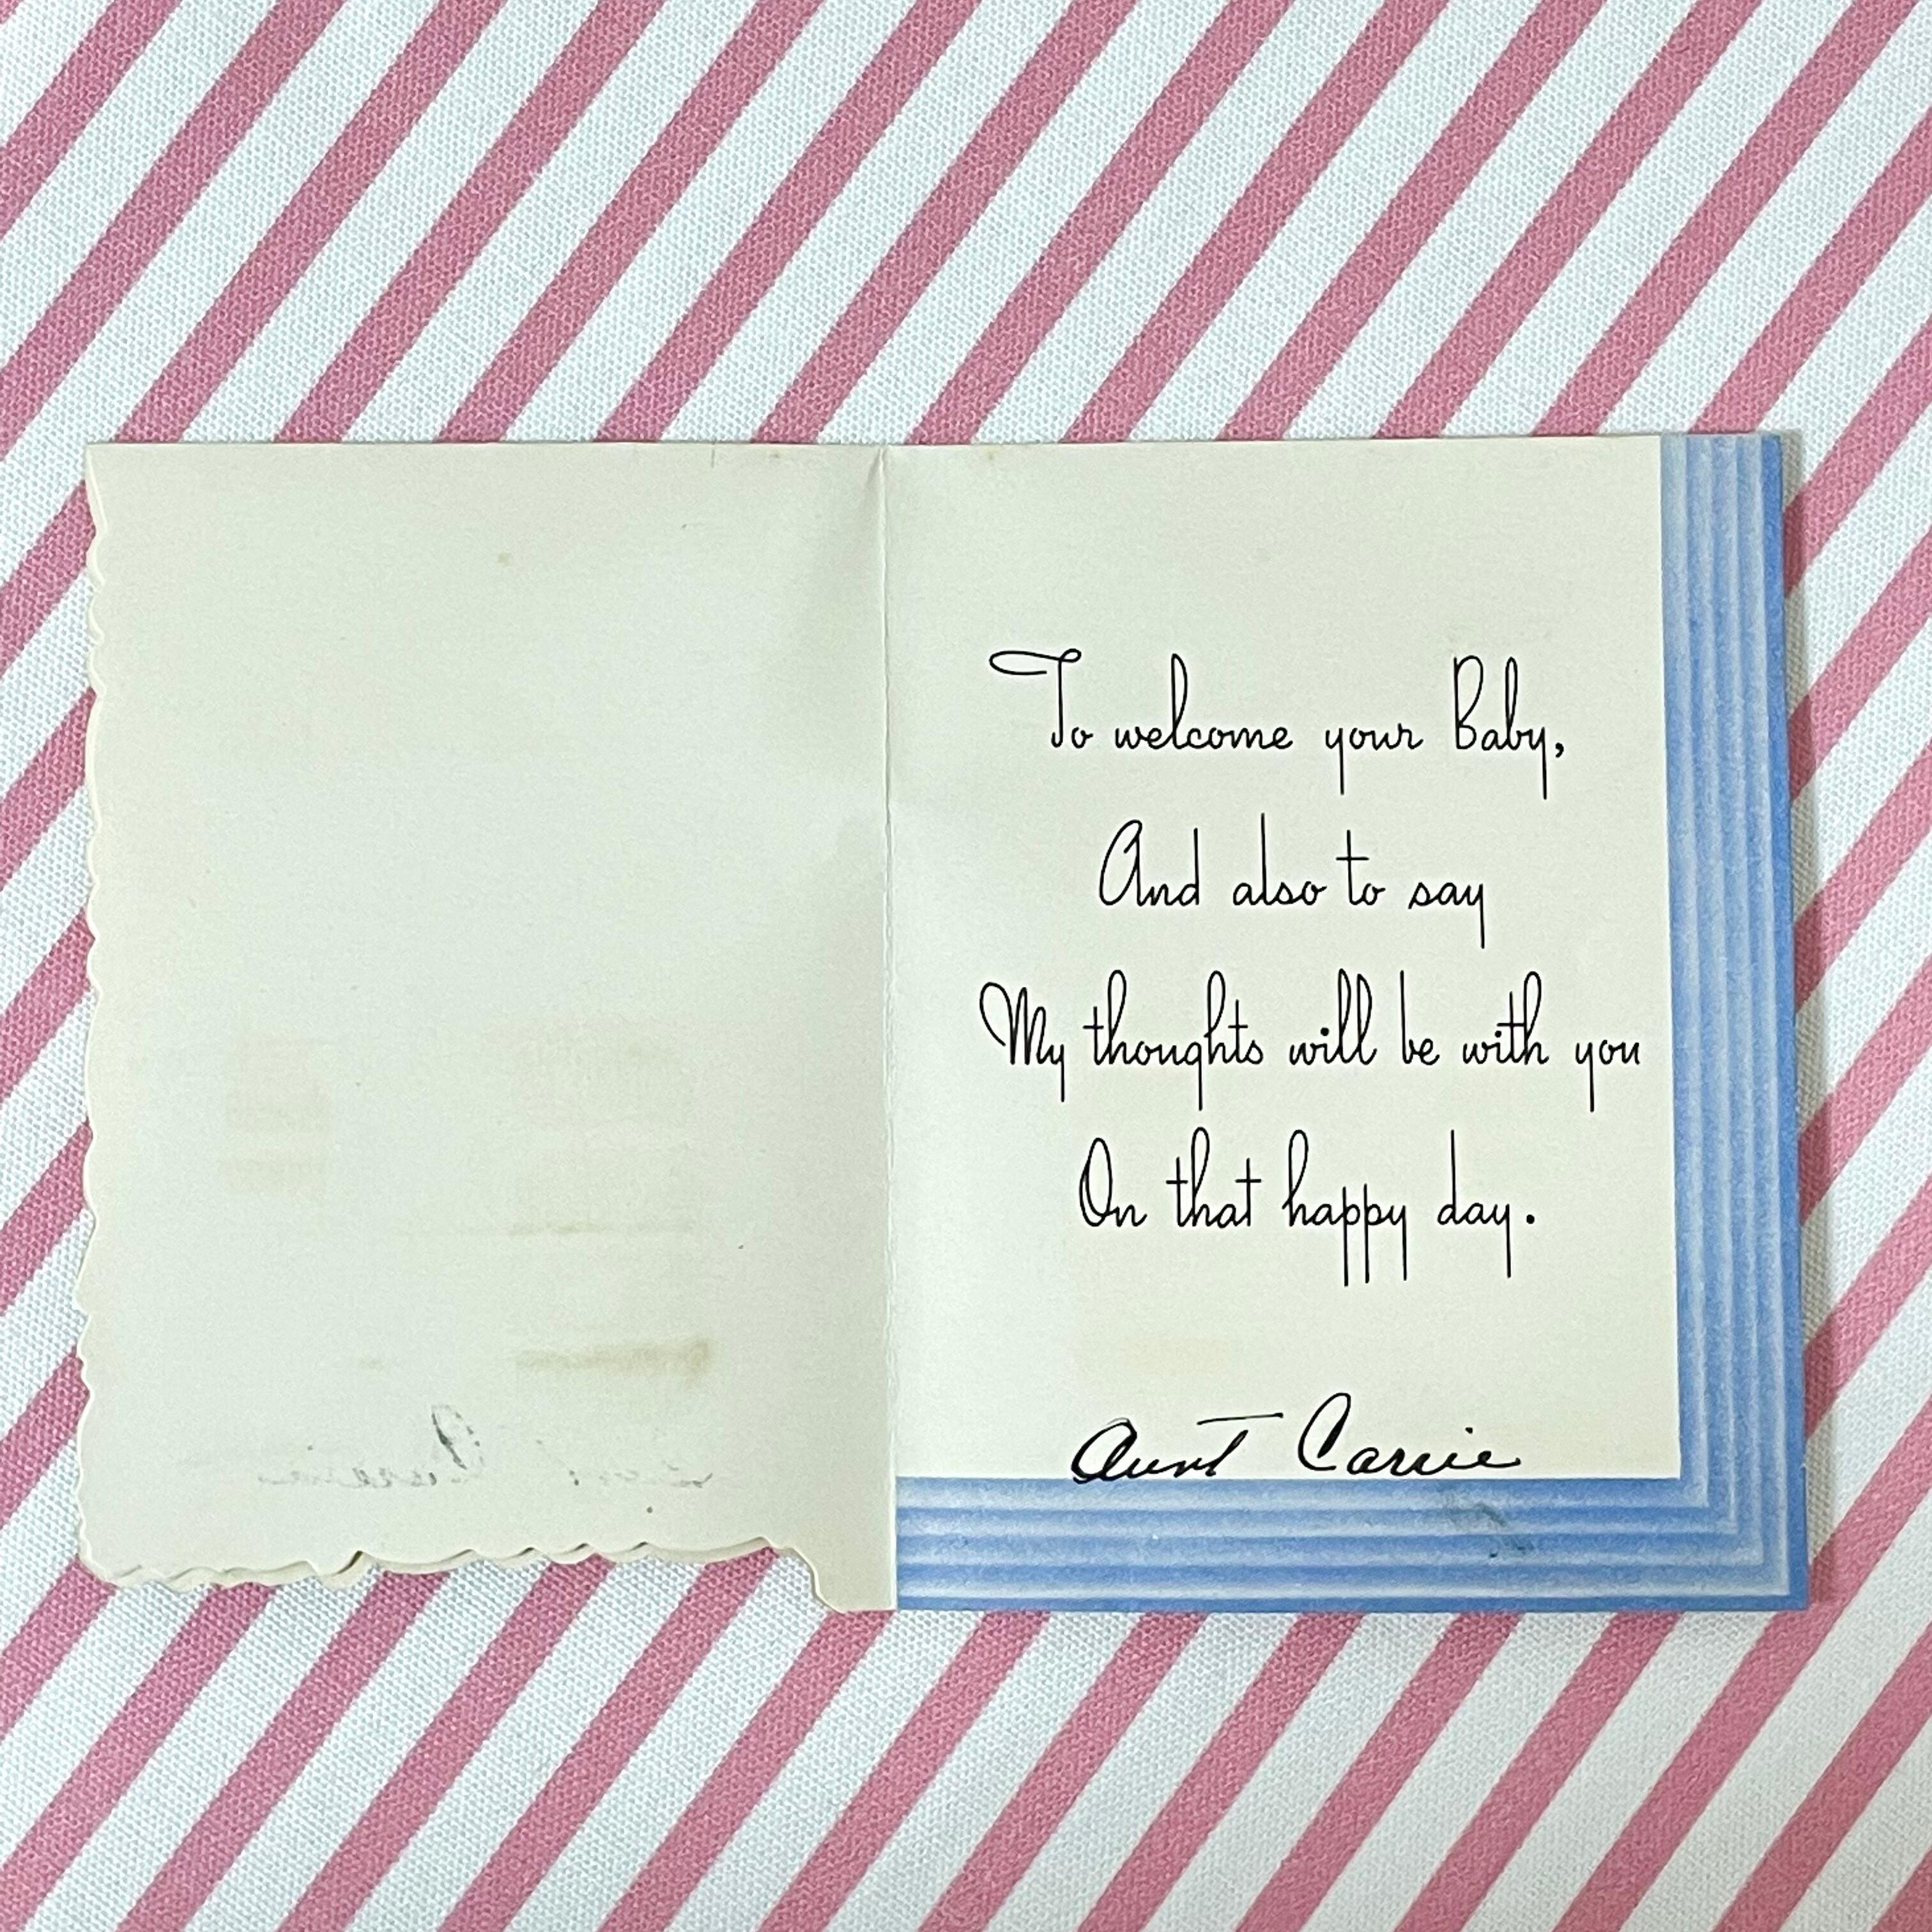 To welcome your Baby,
And also to say
My thoughts will be with you
On that happy day.
Aunt Carrie